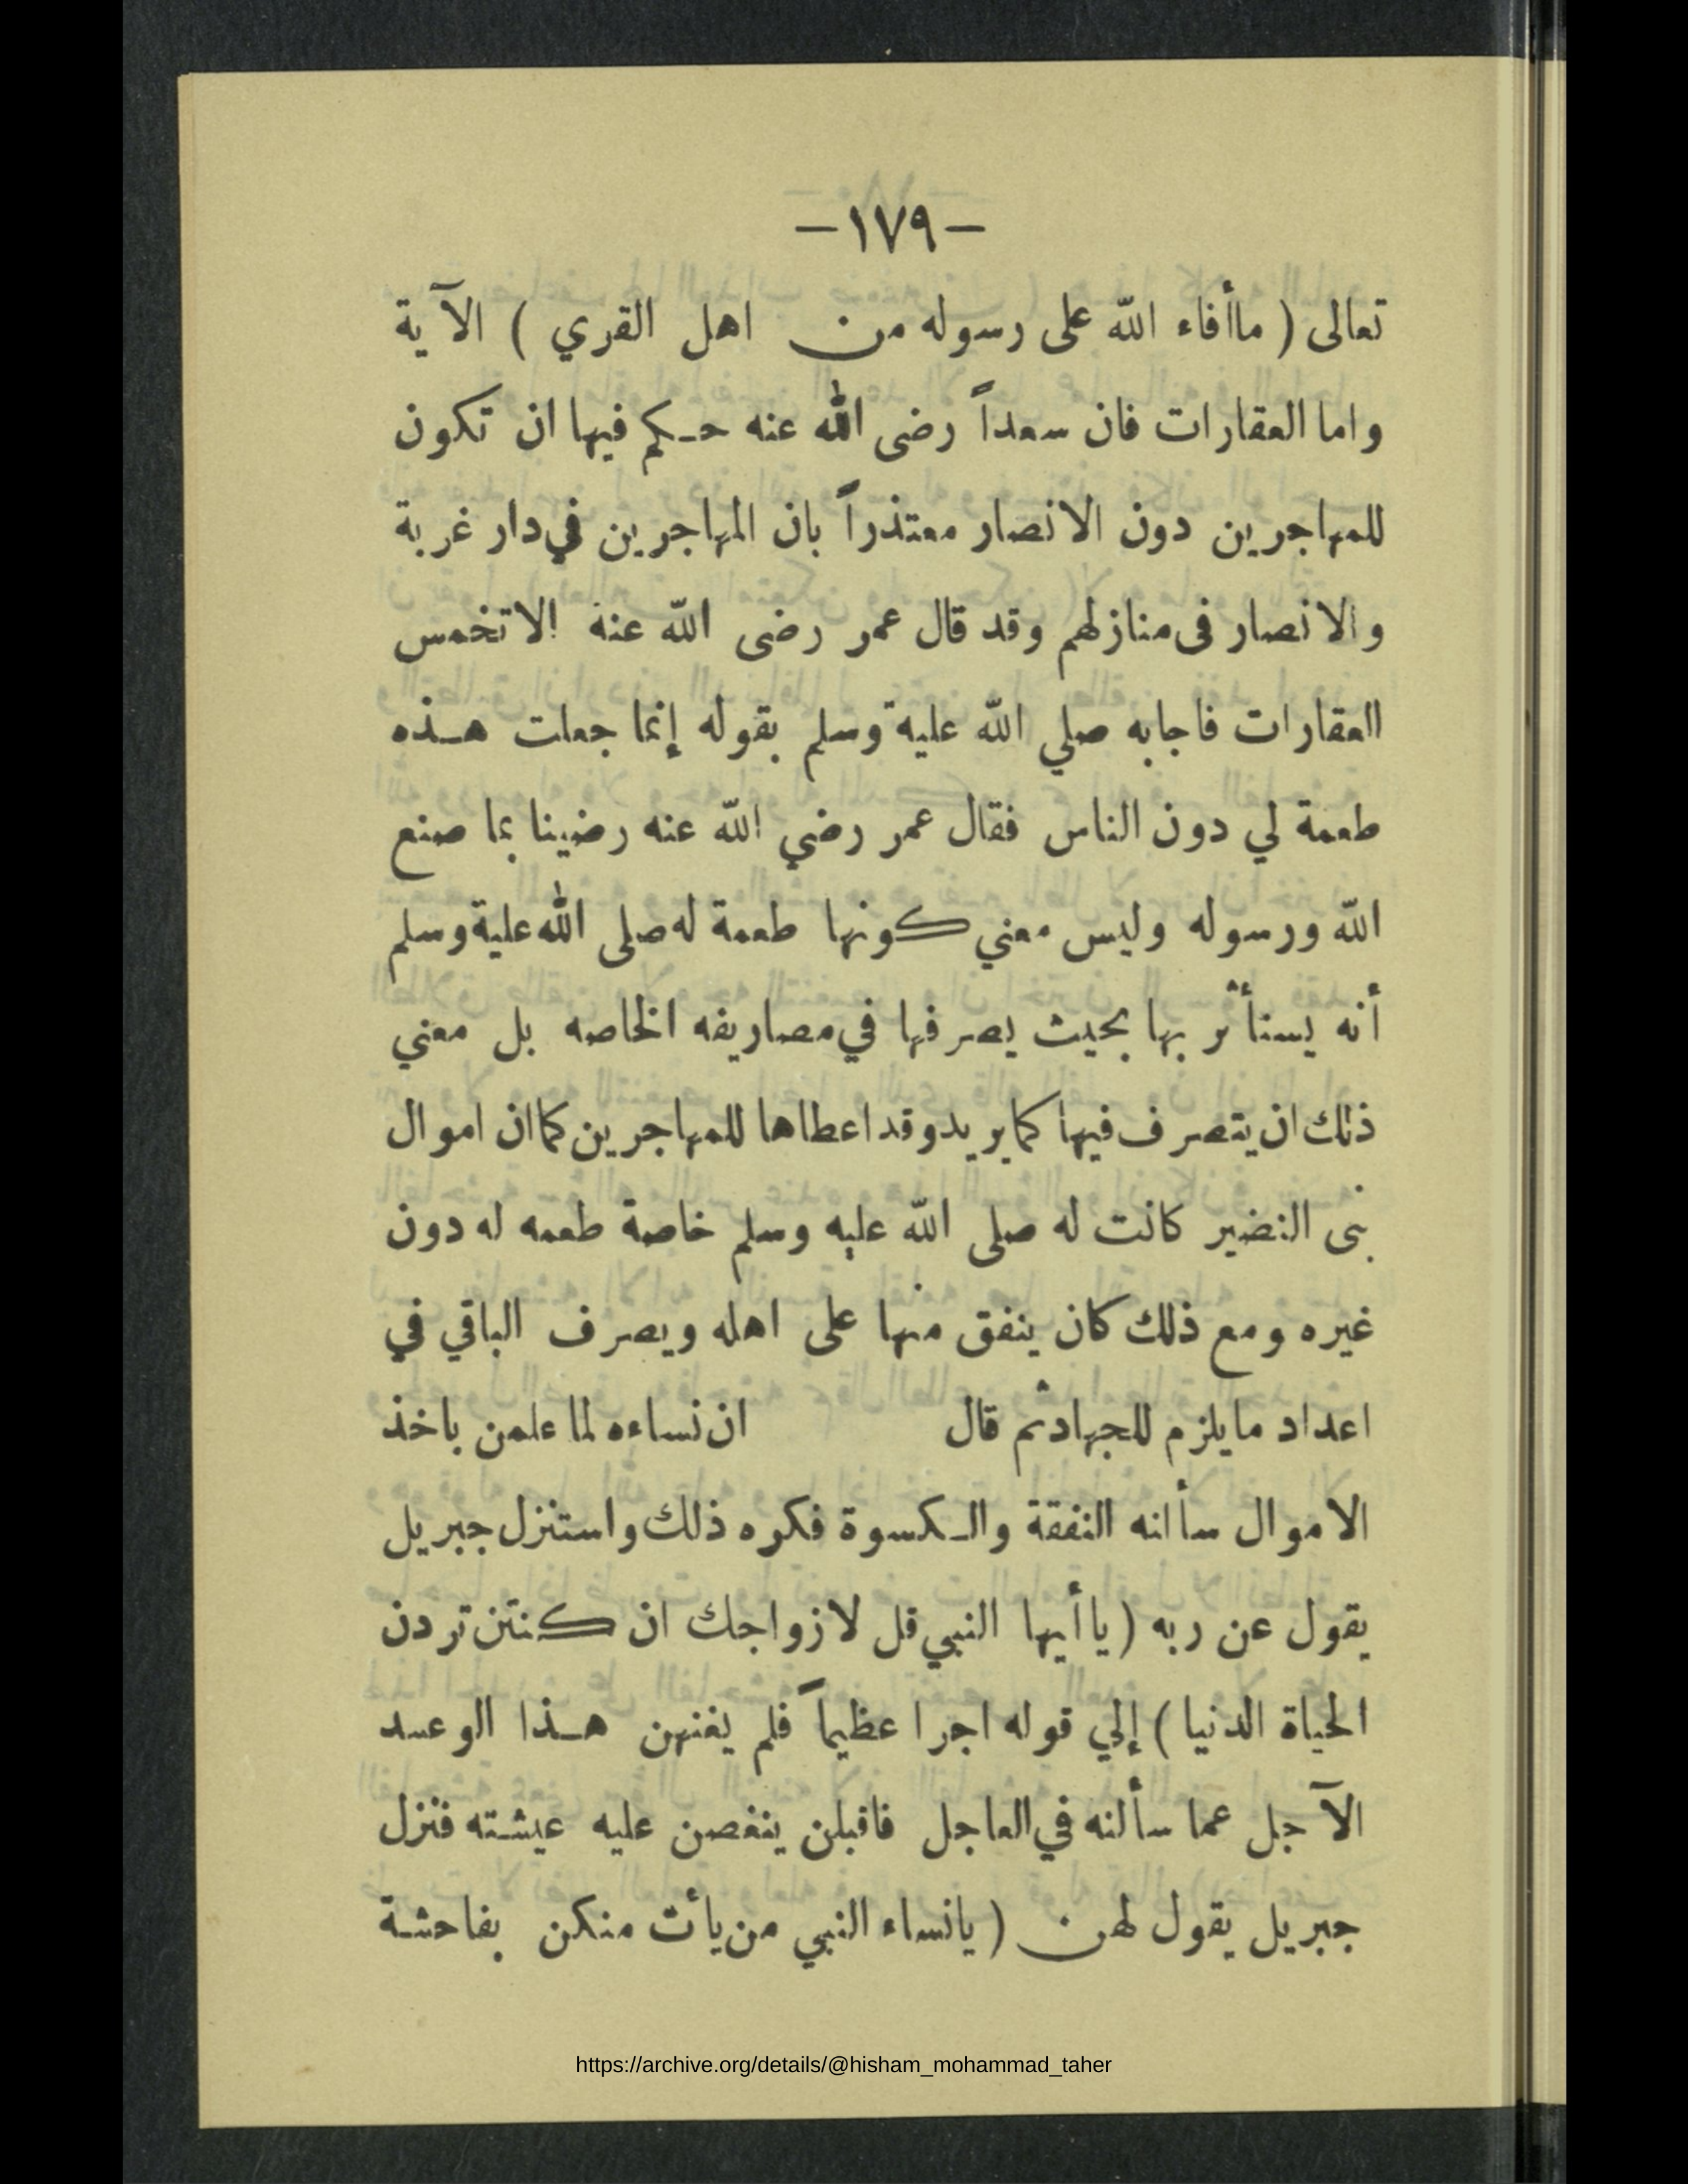 –١٧٩–
تعالى ( ماأفاء الله على رسوله من اهل القري ) الآية
واما العقارات فان سعداً رضى الله عنه حكم فيها ان تكون
للمهاجرين دون الانصار معتذراً بان المهاجرين في دار غربة
والانصار فى منازلهم وقد قال عمر رضى الله عنة الاتخمس
العقارات فاجابه صلي الله علية وسلم بقوله إنما جعلت هذه
طعمة لي دون الناس فقال عمر رضي الله عنه رضينا بما صنع
الله ورسوله وليس معني كونها طعمة له صلى الله علية وسلم
أنه يستأثر بها بحيث يصرفها في مصاريفه الخاصه بل معني
ذلك ان يتصرف فيها كما يريد وقد اعطاها للمهاجرين كما ان اموال
بنى النضير كانت له صلى الله عليه وسلم خاصة طعمه له دون
غيره ومع ذلك كان ينفق منها على اهله ويصرف الباقي في
اعداد مايلزم للجهاد ثم قال ان نساءه لما علمن باخذ
الاموال سألنه النفقة والكسوة فكره ذلك واستنزل جبريل
يقول عن ربه ( ياأيها النبي قل لازواجك ان كنتن تردن
الحياة الدنيا ) إلي قوله اجرا عظيماً فلم يغنهن هذا الوعد
الآجل عما سألنه في العاجل فاقبلن ينغصن عليه عيشته فنزل
جبريل يقول لهن ( يانساء النبي من يأت منكن بفاحشة
https://archive.org/details/@hisham_mohammad_taher